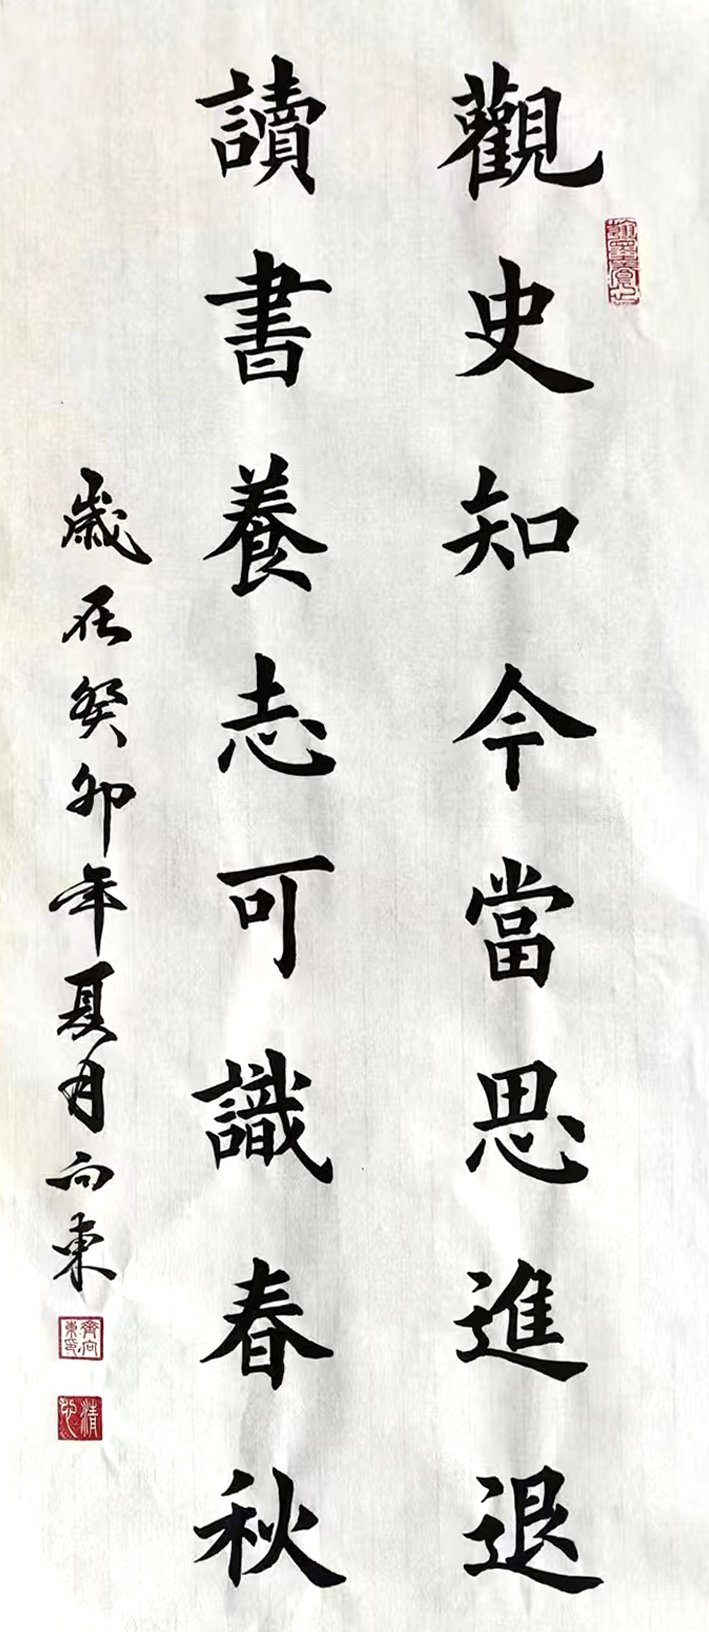 觀史知今當思進退
讀書養志可識春秋
歲在癸卯年夏月向東
齊向東印
清心